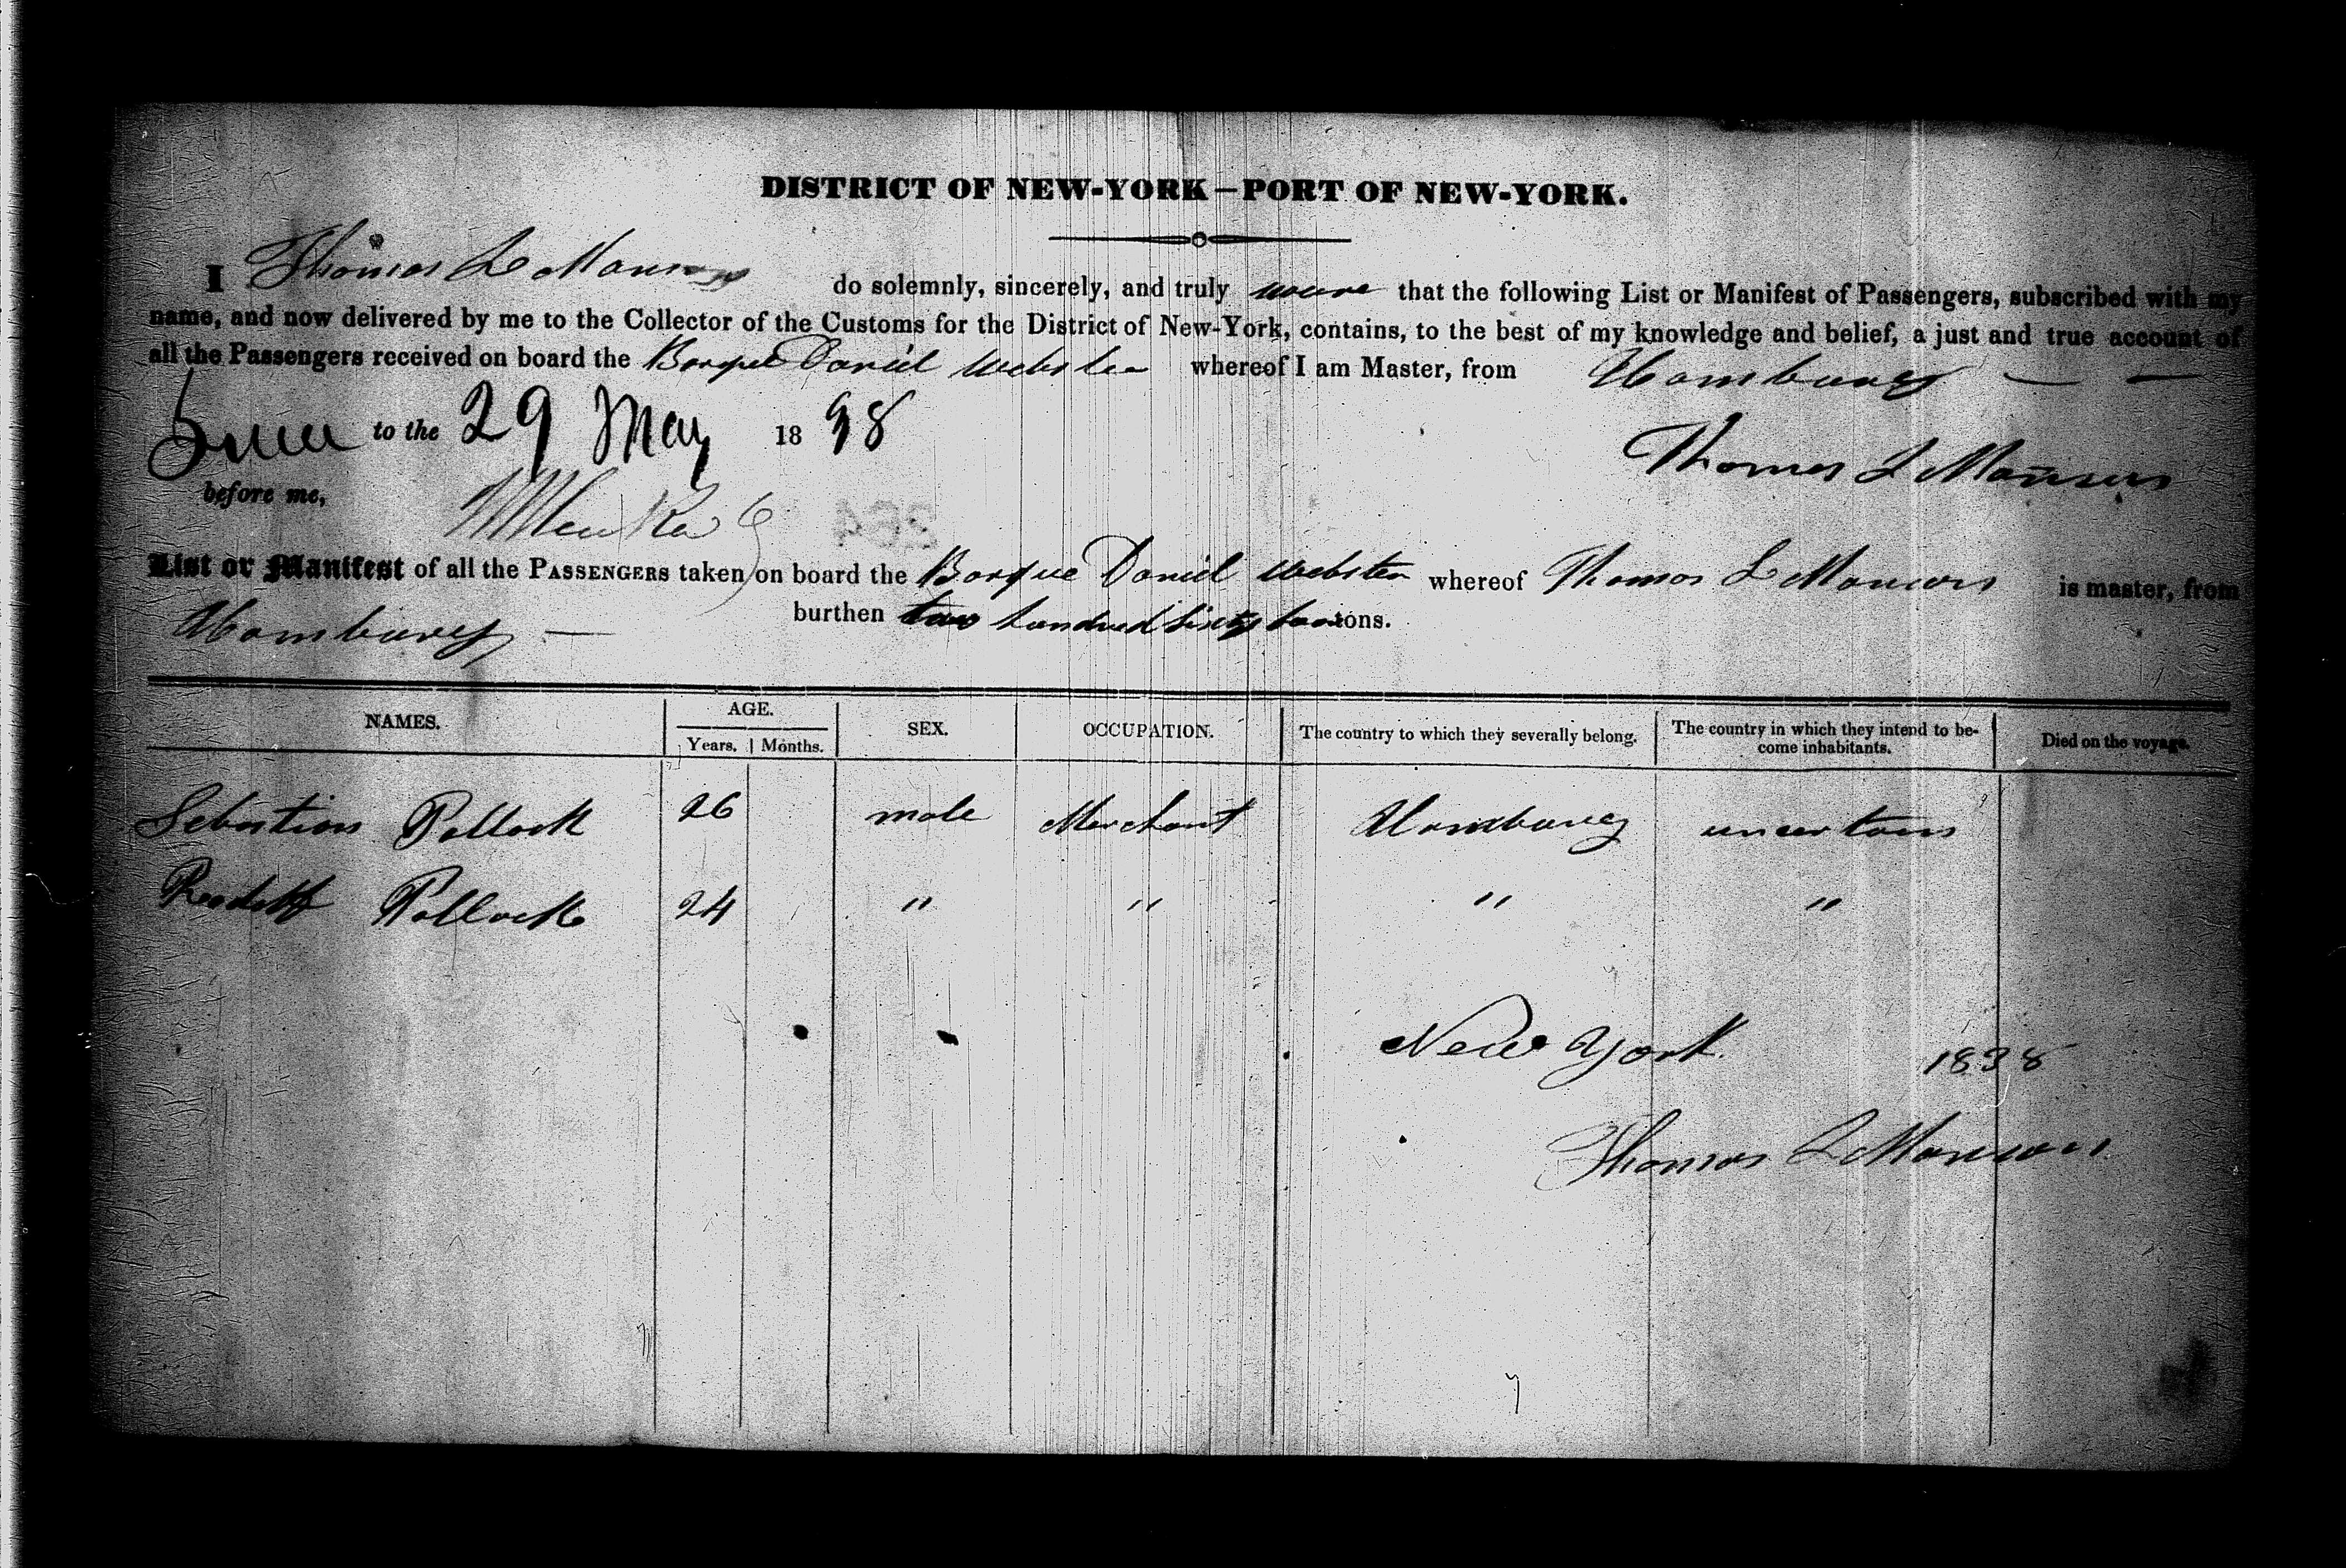 DISTRICT OF NEW-YORK—PORT OF NEW-YORK.
I Thomas L Manson do solemnly, sincerely, and truly swear that the following List or Manifest of Passengers, subscribed with my
name, and now delivered by me to the Collector of the Customs for the District of New-York, contains, to the best of my knowledge and belief, a just and true account of
all the Passengers received on board the Barque Daniel Webster whereof I am Master, from Hamburg — —
Sworn to the 29 May 1838
Thomas L Manson
before me,
List or Manifest of all the PASSENGERS taken on board the Barque Daniel Webster whereof Thomas L Manson is master, from
Hamburg — burthen two hundred sixty four tons.
NAMES. AGE. Years. Months. SEX. OCCUPATION. The country to which they severally belong. The country in which they intend to be-
come inhabitants. Died on the voyage.
Sebastian Pollock 26 male Merchant Hamburg uncertain
Pollock 24 " " " "
New York 1838
Thomas L Manson